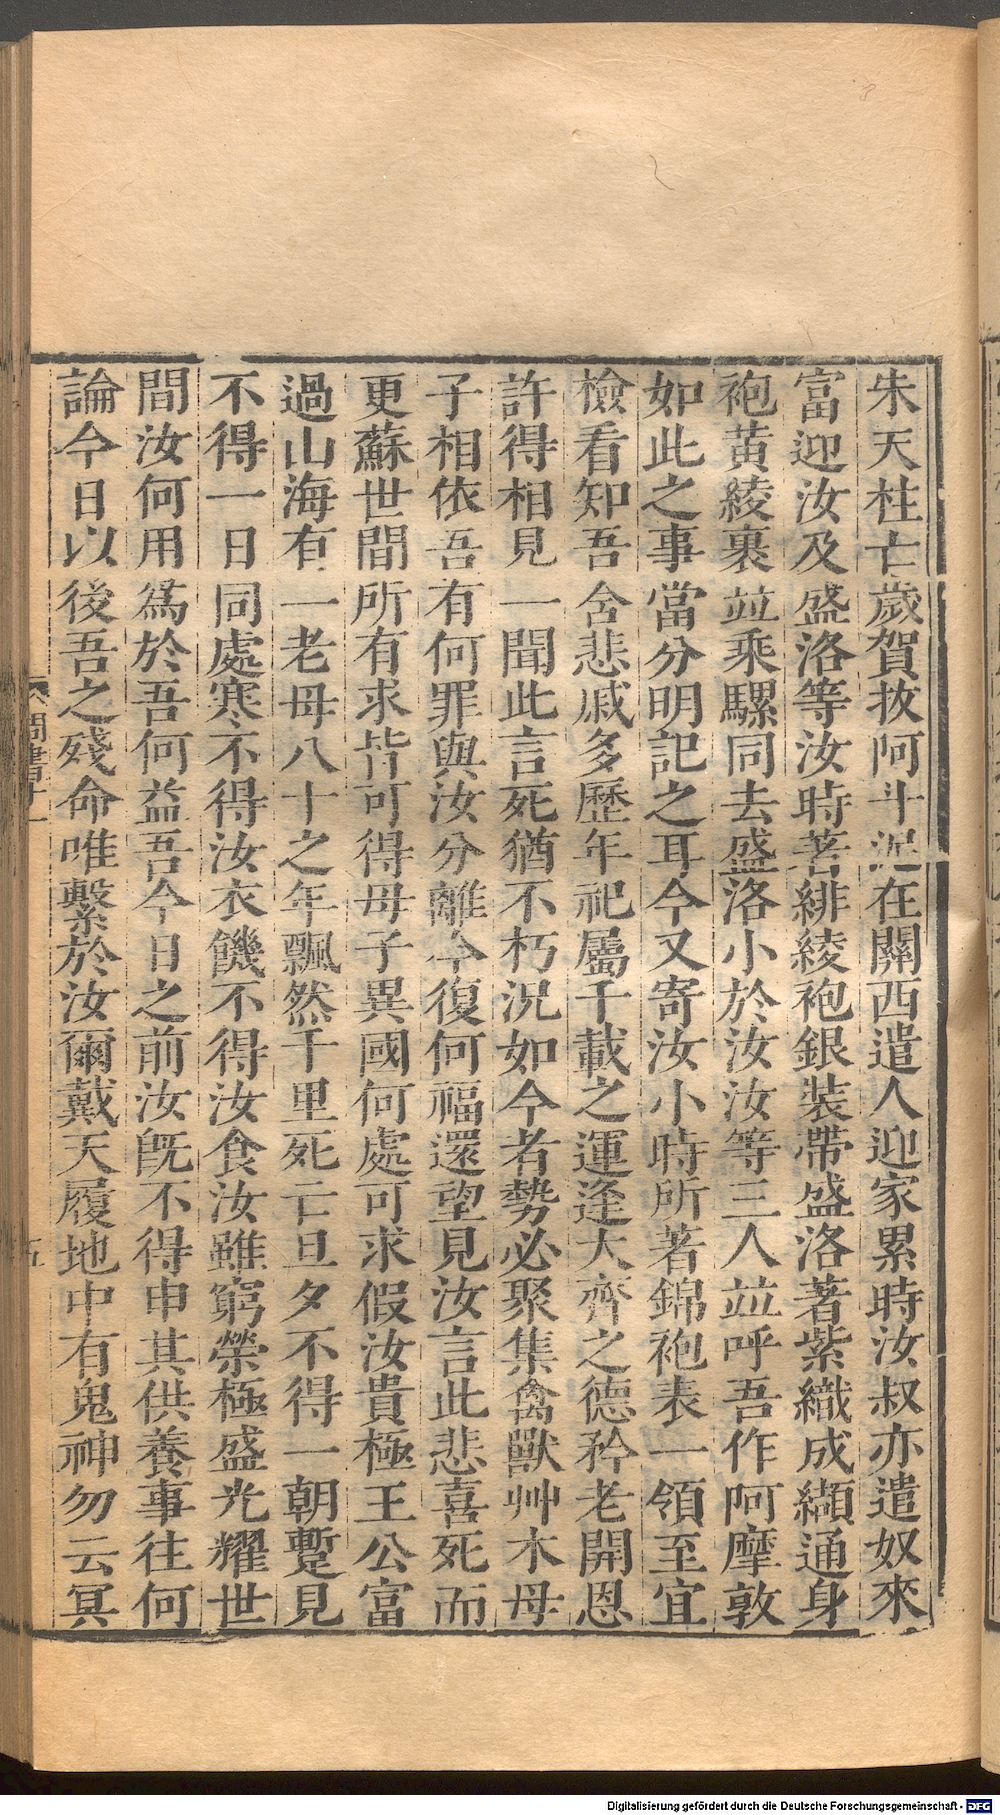 朱天柱亡歲賀抜阿斗泥在關西遣人迎家累時汝叔亦遣奴來
富迎汝及盛洛等汝時著緋綾袍銀裝帶盛洛著紫織成纈通身
袍黃綾裏竝乘騾同去盛洛小於汝汝等三人竝呼吾作阿摩敦
如此之事當分明記之耳今又寄汝小時所著錦袍表一領至宜
檢看知吾含悲戚多歷年祀屬千載之運逢大齊之德矜老開恩
許得相見一聞此言死猶不朽況如今者勢必聚集禽獸艸木母
子相依吾有何罪與汝分離今復何福還望見汝言此悲喜死而
更蘇世間所有求皆可得母子異國何處可求假汝貴極王公富
過山海有一老母八十之年飄然千里死亡旦夕不得一朝蹔見
不得一日同處寒不得汝衣饑不得汝食汝雖窮榮極盛光耀世
間汝何用爲於吾何益吾今日之前汝旣不得申其供養事往何
論今日以後吾之殘命唯繫於汝爾戴天履地中有鬼神勿云冥
周書十一
五
Digitalisierung gefördert durch die Deutsche Forschungsgemeinschaft - DFG